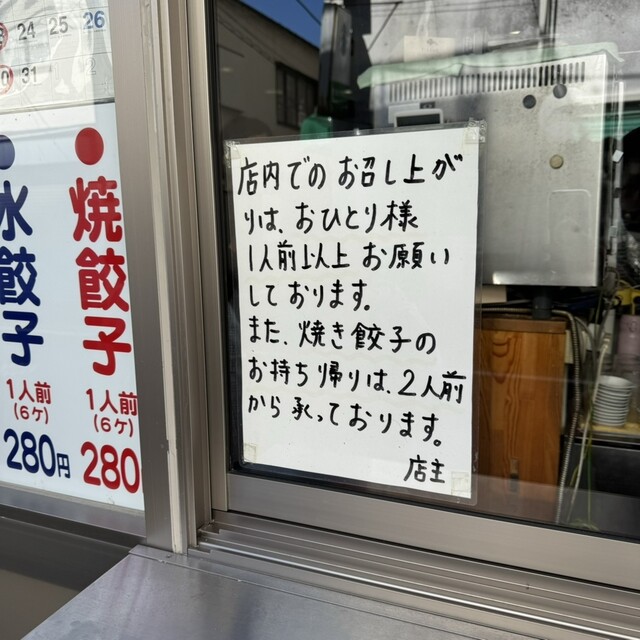 24 25 26
31
水餃子
1人前
(6ケ)
280円
焼餃子
1人前
(6ケ)
280
店内でのお召し上が
りは、おひとり様
1人前以上お願い
しております。
また、焼き餃子の
お持ち帰りは、2人前
から承っております。
店主